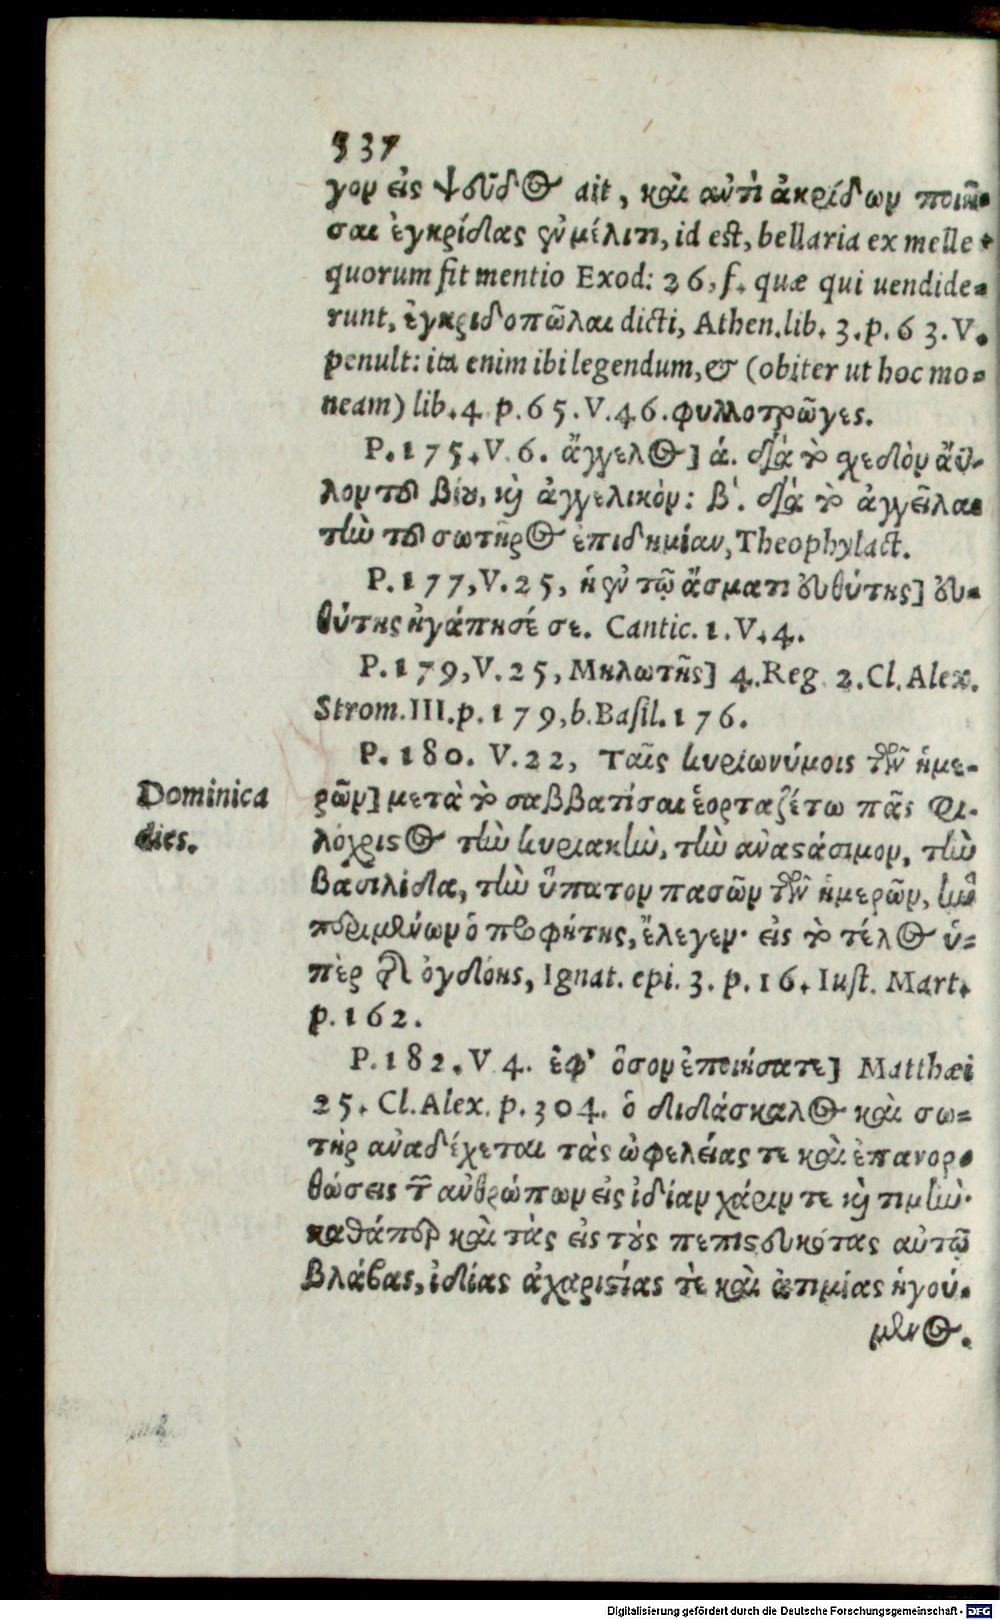 337
γον εἰς ψεῦδος ait, καὶ αὐτὶ ἀκρίδων ποιῆ-
σαι ἐγκρίδας ἐν μέλιτι, id est, bellaria ex melle
quorum fit mentio Exod: 26, f. quæ qui uendide-
runt, ἐγκριδοπῶλαι dicti, Athen. lib. 3. p. 63. V.
penult: ita enim ibi legendum, & (obiter ut hoc mo-
neam) lib. 4 p. 65. V. 46. φυλλοτρῶγες.
P. 175. V. 6. ἄγγελος] ά. διὰ τὸ σχεδὸν ἄϋ-
λον τοῦ βίου, καὶ ἀγγελικὸν: β'. διὰ τὸ ἀγγεῖλαι
τὴν τοῦ σωτῆρος ἐπιδημίαν, Theophylact.
P. 177, V. 25, ἡ ἐν τῷ ᾄσματι εὐθύτης] εὐ-
θύτης ἠγάπησέ σε. Cantic. 1. V. 4.
P. 179, V. 25, Μηλωτῆς] 4. Reg 2. Cl. Alex.
Strom. III. p. 179, b. Basil. 176.
P. 180. V. 22, Ταῖς κυριωνύμοις τῶν ἡμε-
Dominica
dies.
ρῶν] μετὰ τὸ σαββατίσαι ἑορταζέτω πᾶς φι-
λόχριστος τὴν κυριακὴν, τὴν ἀναστάσιμον, τὴν
βασιλίδα, τὴν ὕπατον πασῶν τῶν ἡμερῶν, ἣν
περιμένων ὁ προφήτης, ἔλεγεν· εἰς τὸ τέλος ὑ-
πὲρ τῆς ὀγδόης, Ignat. epi. 3. p. 16. Iust. Mart.
p. 162.
P. 182. V 4. ἐφ' ὅσον ἐποιήσατε] Matthæi
25. Cl. Alex. p. 304. ὁ διδάσκαλος καὶ σω-
τὴρ ἀναδέχεται τὰς ὠφελείας τε καὶ ἐπανορ-
θώσεις τῶν ἀνθρώπων εἰς ἰδίαν χάριν τε καὶ τιμὴν·
καθάπερ καὶ τὰς εἰς τοὺς πεπιστευκότας αὐτῷ
βλάβας, ἰδίας ἀχαριστίας τὲ καὶ ἀτιμίας ἡγού-
μενος.
Digitalisierung gefördert durch die Deutsche Forschungsgemeinschaft - DFG